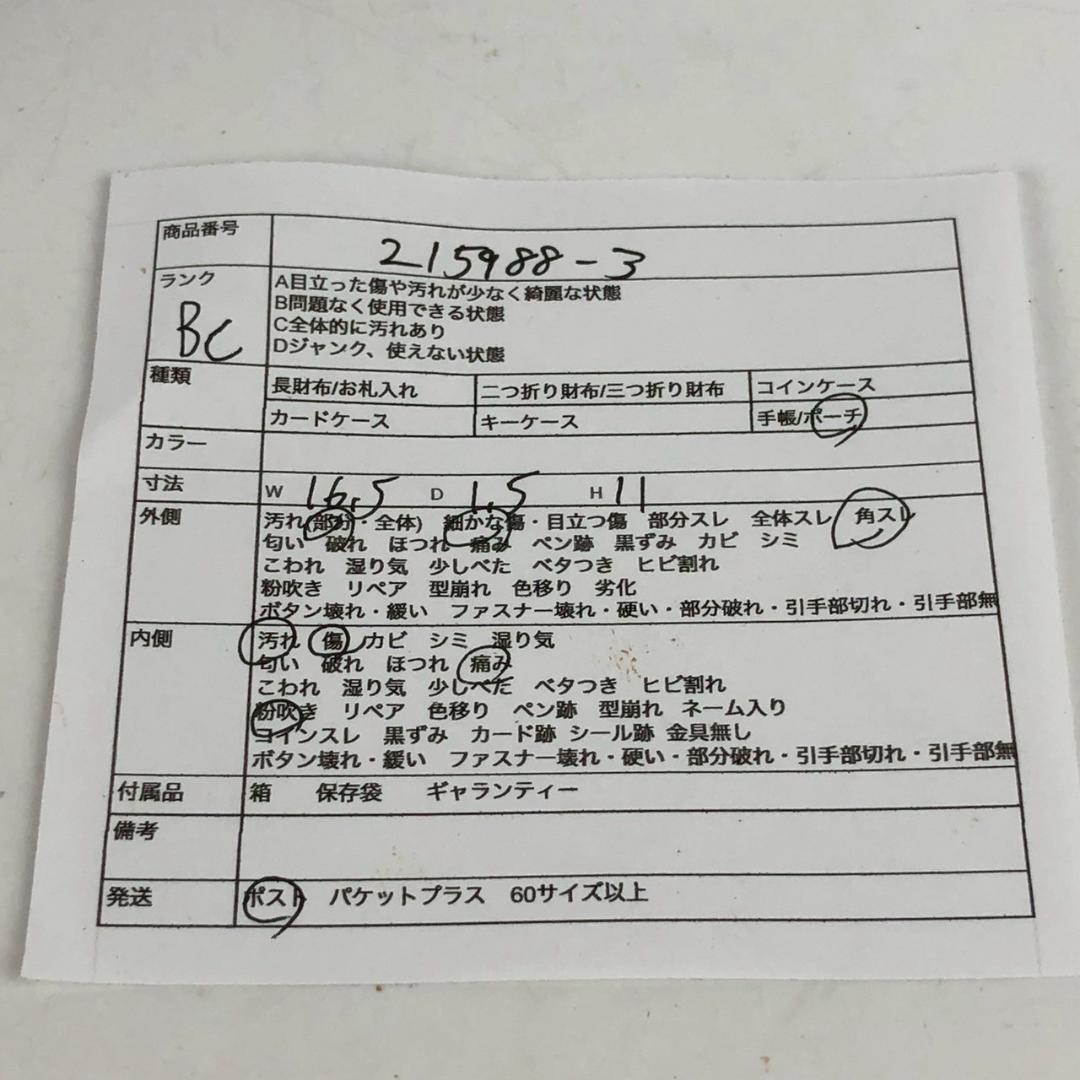 商品番号 215988-3
ランク BC
A目立った傷や汚れが少なく綺麗な状態
B問題なく使用できる状態
C全体的に汚れあり
Dジャンク、使えない状態
種類 長財布/お札入れ 二つ折り財布/三つ折り財布 コインケース
カードケース キーケース 手帳/ポーチ
カラー
寸法 W 16.5 D 1.5 H 11
外側 汚れ(部分・全体) 細かな傷・目立つ傷 部分スレ 全体スレ 角スレ
匂い 破れ ほつれ 痛み ペン跡 黒ずみ カビ シミ
こわれ 湿り気 少しべた ベタつき ヒビ割れ
粉吹き リペア 型崩れ 色移り 劣化
ボタン壊れ・緩い ファスナー壊れ・硬い・部分破れ・引手部切れ・引手部無
内側 汚れ 傷 カビ シミ 湿り気
匂い 破れ ほつれ 痛み
こわれ 湿り気 少しべた ベタつき ヒビ割れ
粉吹き リペア 色移り ペン跡 型崩れ ネーム入り
コインスレ 黒ずみ カード跡 シール跡 金具無し
ボタン壊れ・緩い ファスナー壊れ・硬い・部分破れ・引手部切れ・引手部無
付属品 箱 保存袋 ギャランティー
備考
発送 ポスト パケットプラス 60サイズ以上